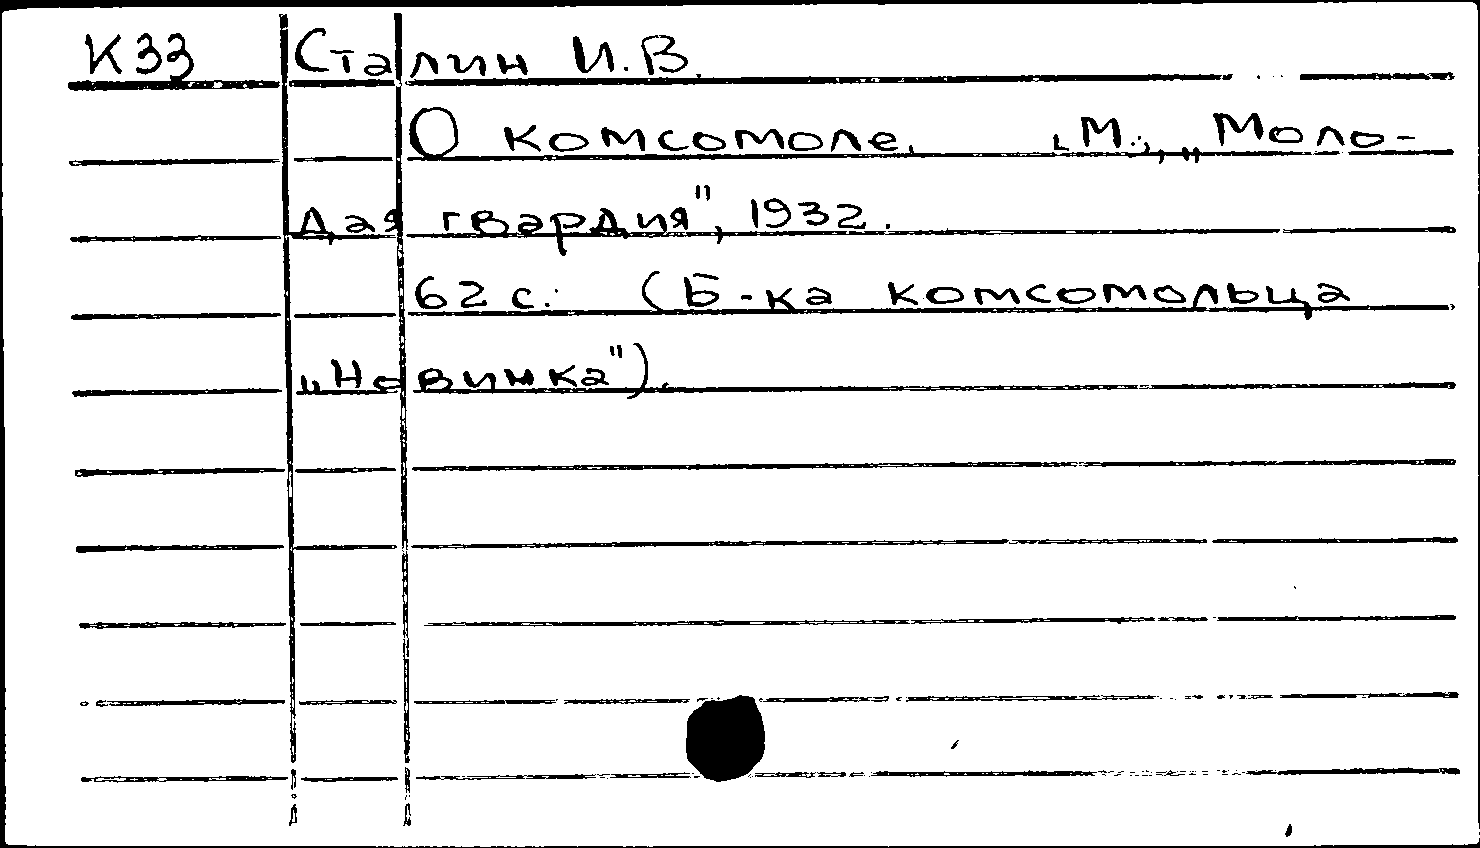 К33 Сталин И.В.
О комсомоле. М., „Моло-
дая гвардия", 1932.
62 с. (Б-ка комсомольца
„Новинка").